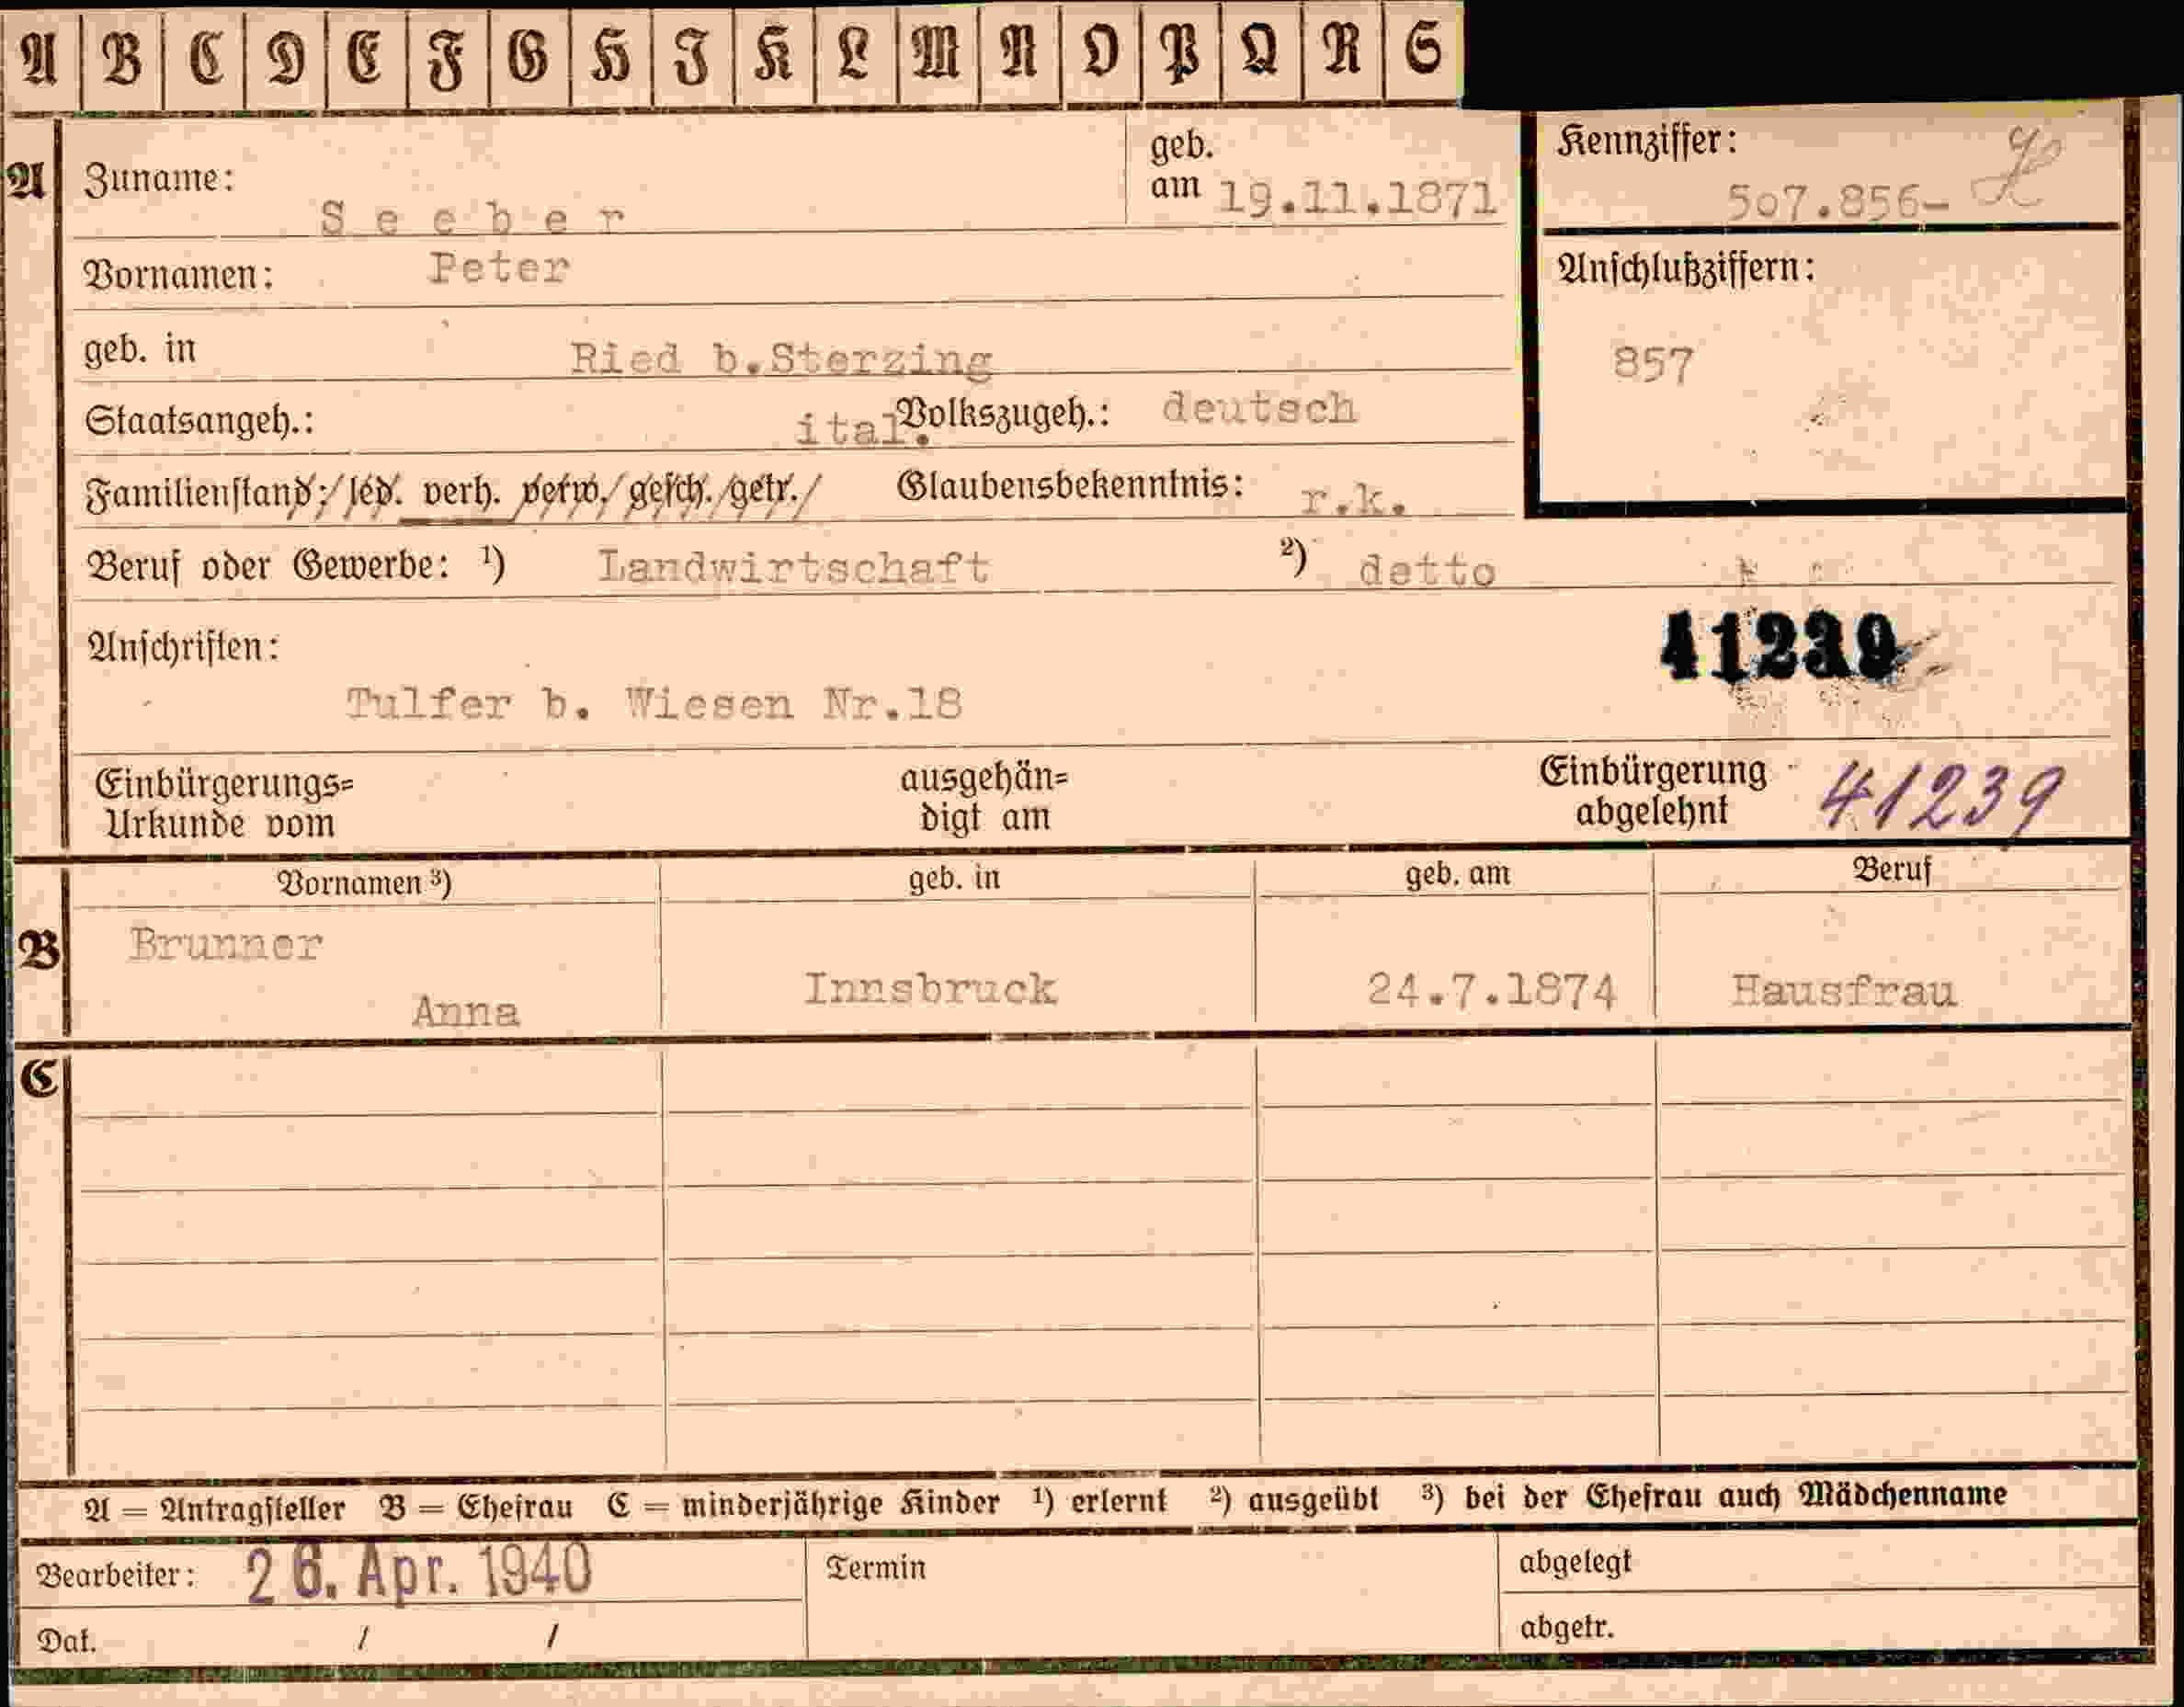 A B C D E F G H I K L M N O P Q R S
A Zuname: Seeber geb. am 19.11.1871
Kennziffer: 507.856-
Vornamen: Peter
Anschlußziffern:
857
geb. in Ried b.Sterzing
Staatsangeh.: ital. Volkszugeh.: deutsch
Familienstand: led. verh. verw. gesch. getr. Glaubensbekenntnis: r.k.
Beruf oder Gewerbe: 1) Landwirtschaft 2) detto
Anschriften:
41239
Tulfer b. Wiesen Nr.18
Einbürgerungs= ausgehän= Einbürgerung
Urkunde vom digt am abgelehnt 41239
Vornamen 3) geb. in geb. am Beruf
B Brunner
Anna Innsbruck 24.7.1874 Hausfrau
C
A = Antragsteller B = Ehefrau C = minderjährige Kinder 1) erlernt 2) ausgeübt 3) bei der Ehefrau auch Mädchenname
Bearbeiter: 26. Apr. 1940 Termin abgelegt
Dat. / / abgetr.